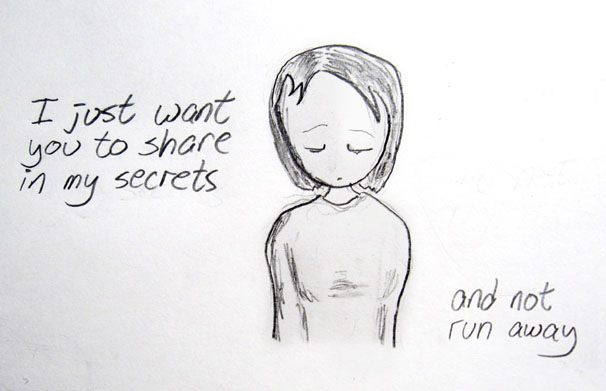 I just want
you to share
in my secrets
and not
run away